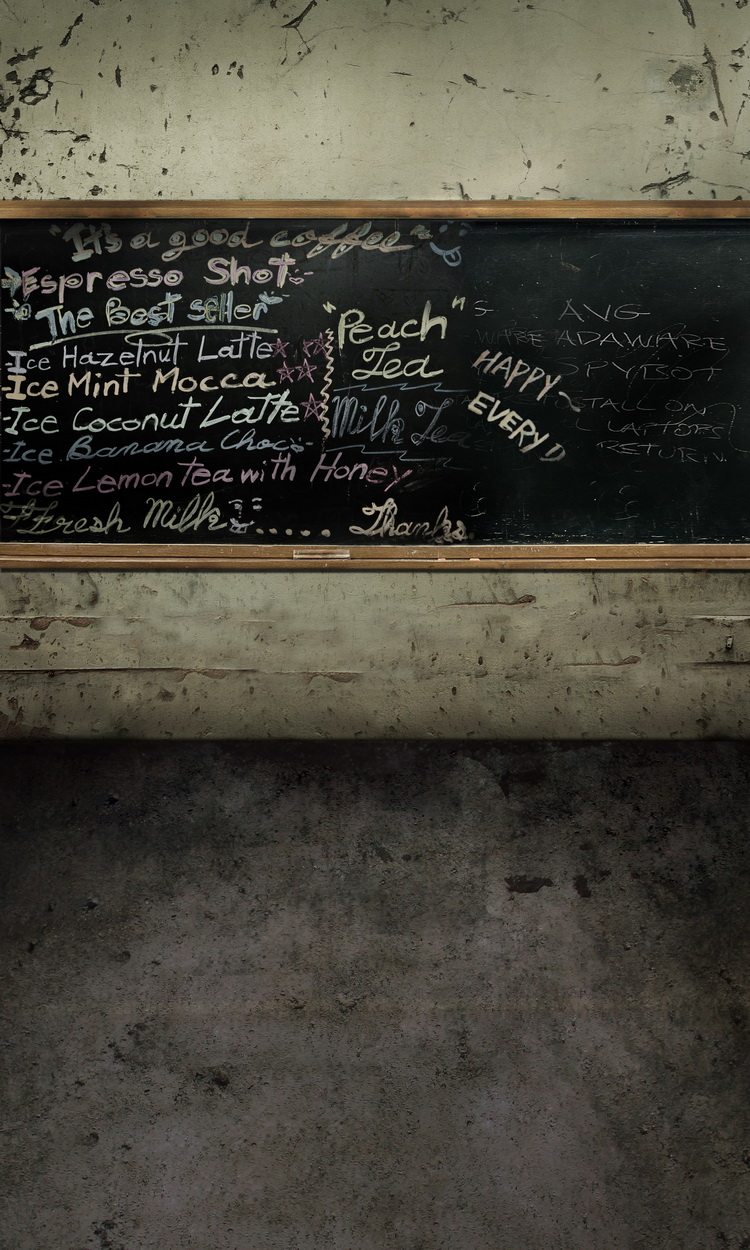 "It's a good coffee"
Espresso Shot
The Best seller
Ice Hazelnut Latte
Ice Mint Mocca
Ice Coconut Latte
Ice Banana Choco
Ice Lemon tea with Honey
#Fresh Milk ..... Thanks.
"Peach"
Tea
Milk Tea
HAPPY ~
EVERY D
S
AVG
WARE ADAWARE
PYBOT
STALL ON
LAPTOPS
RETURN